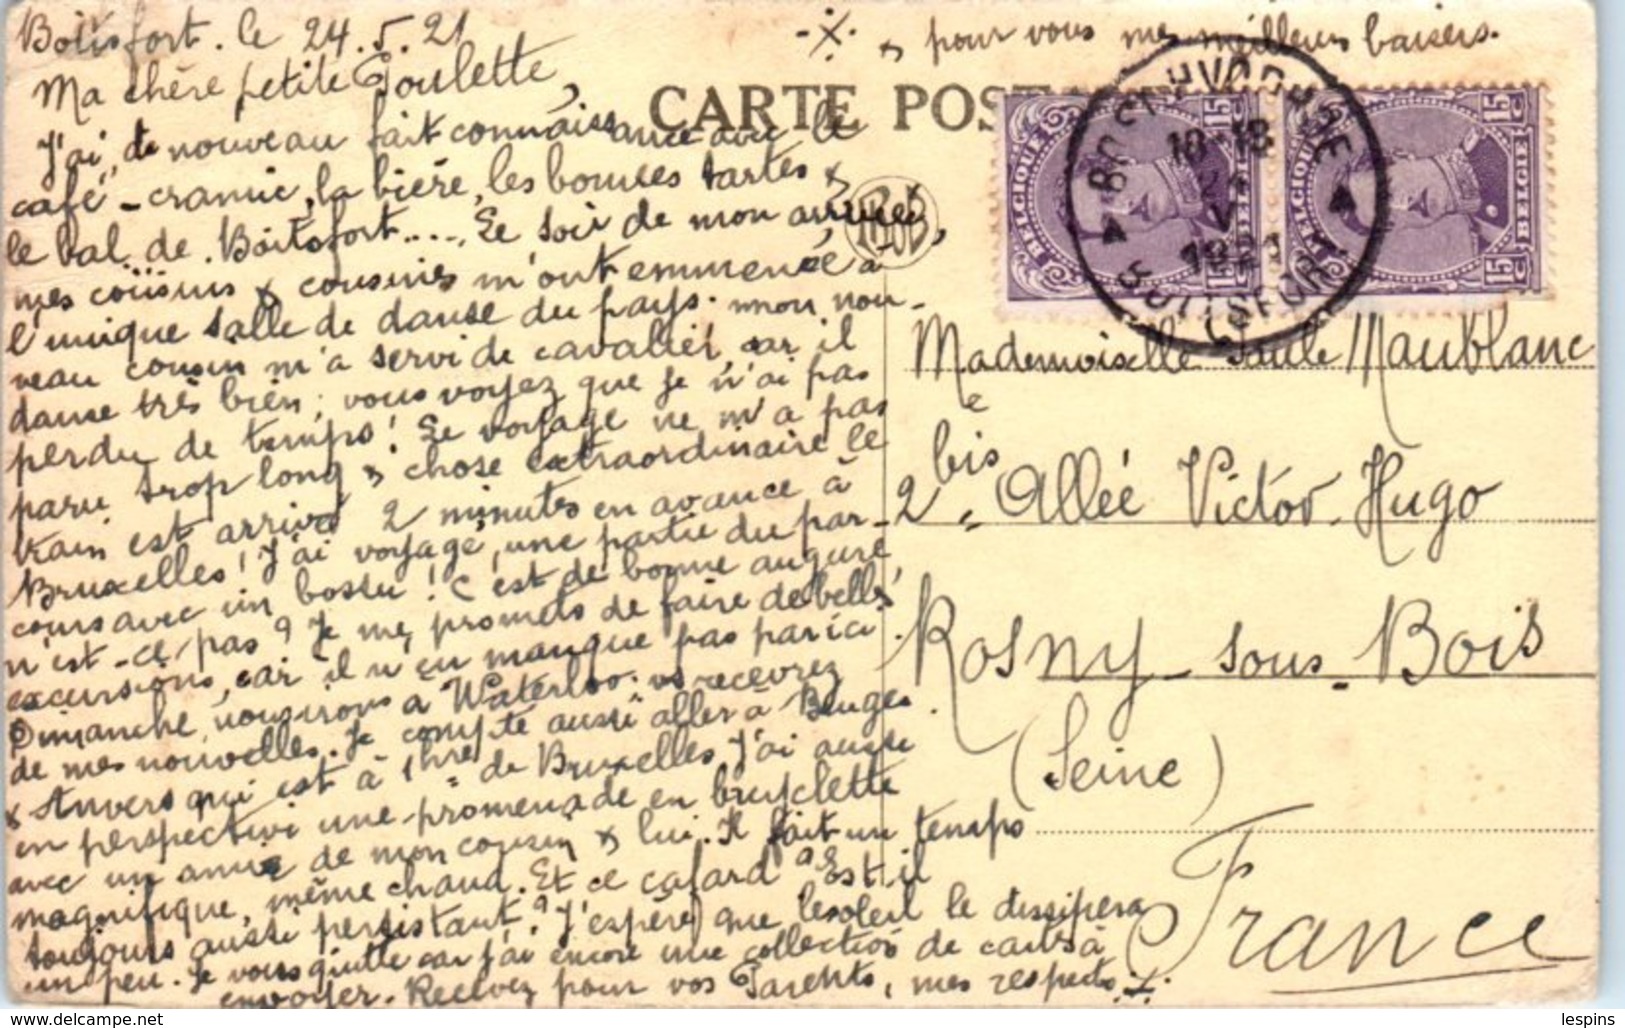 Boitsfort. le 24.5.21
-x- & pour vous mes meilleurs baisers.
Ma chère petite Poulette,
CARTE POSTALE
J'ai, de nouveau fait connaissance avec le
café-cramic, la bière, les bonnes tartes &
le bal de Boitsfort.... Le soir de mon arrivée,
mes cousins & cousines m'ont emmenée à
l'unique salle de danse du pays. mon nou-
veau cousin m'a servi de cavalier, car il
danse très bien; vous voyez que je n'ai pas
perdu de temps! Le voyage ne m'a pas
paru trop long & chose extraordinaire le
train est arrivé 2 minutes en avance à
Bruxelles! J'ai voyagé, une partie du par-
cours avec un bossu! C'est de bonne augure
n'est-ce pas? Je me promets de faire de belles
excursions, car il n'en manque pas par ici.
Dimanche, nous irons à Waterloo. vs recevrez
de mes nouvelles. Je compte aussi aller à Bruges
& Anvers qui est à 1hre de Bruxelles J'ai aussi
en perspective une promenade en bicyclette
avec un amie de mon cousin & lui. Il fait un temps
magnifique, même chaud. Et ce cafard? Est-il
toujours aussi persistant? J'espère que le soleil le dissipera
un peu. Je vous quitte car j'ai encore une collection de cartes à
envoyer. Recevez pour vos Parents, mes respects -x-
BELGIQUE
15 C
BELGIE
BELGIQUE
15 C
BELGIE
BOSCHVOORDE
18-18
V
1921
BOITSFORT
Mademoiselle Paule Maublanc
2 bis, Allée Victor-Hugo
Rosny-sous-Bois
(Seine)
France
lespins